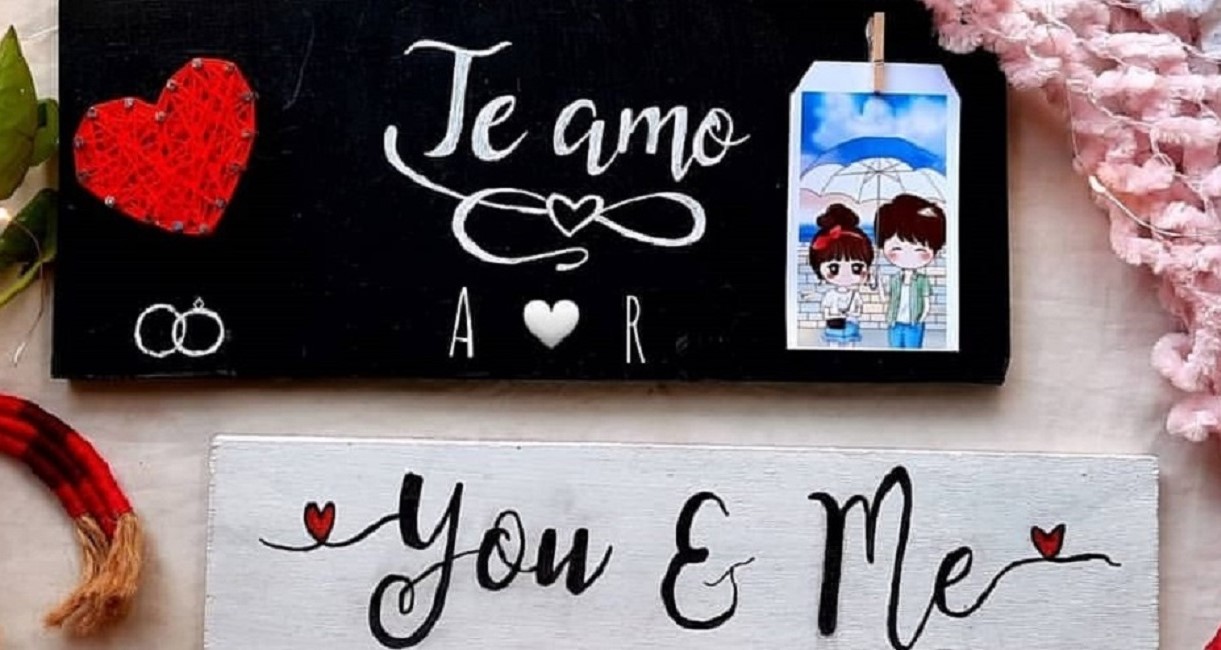 Te amo
A 🤍 R
You & Me